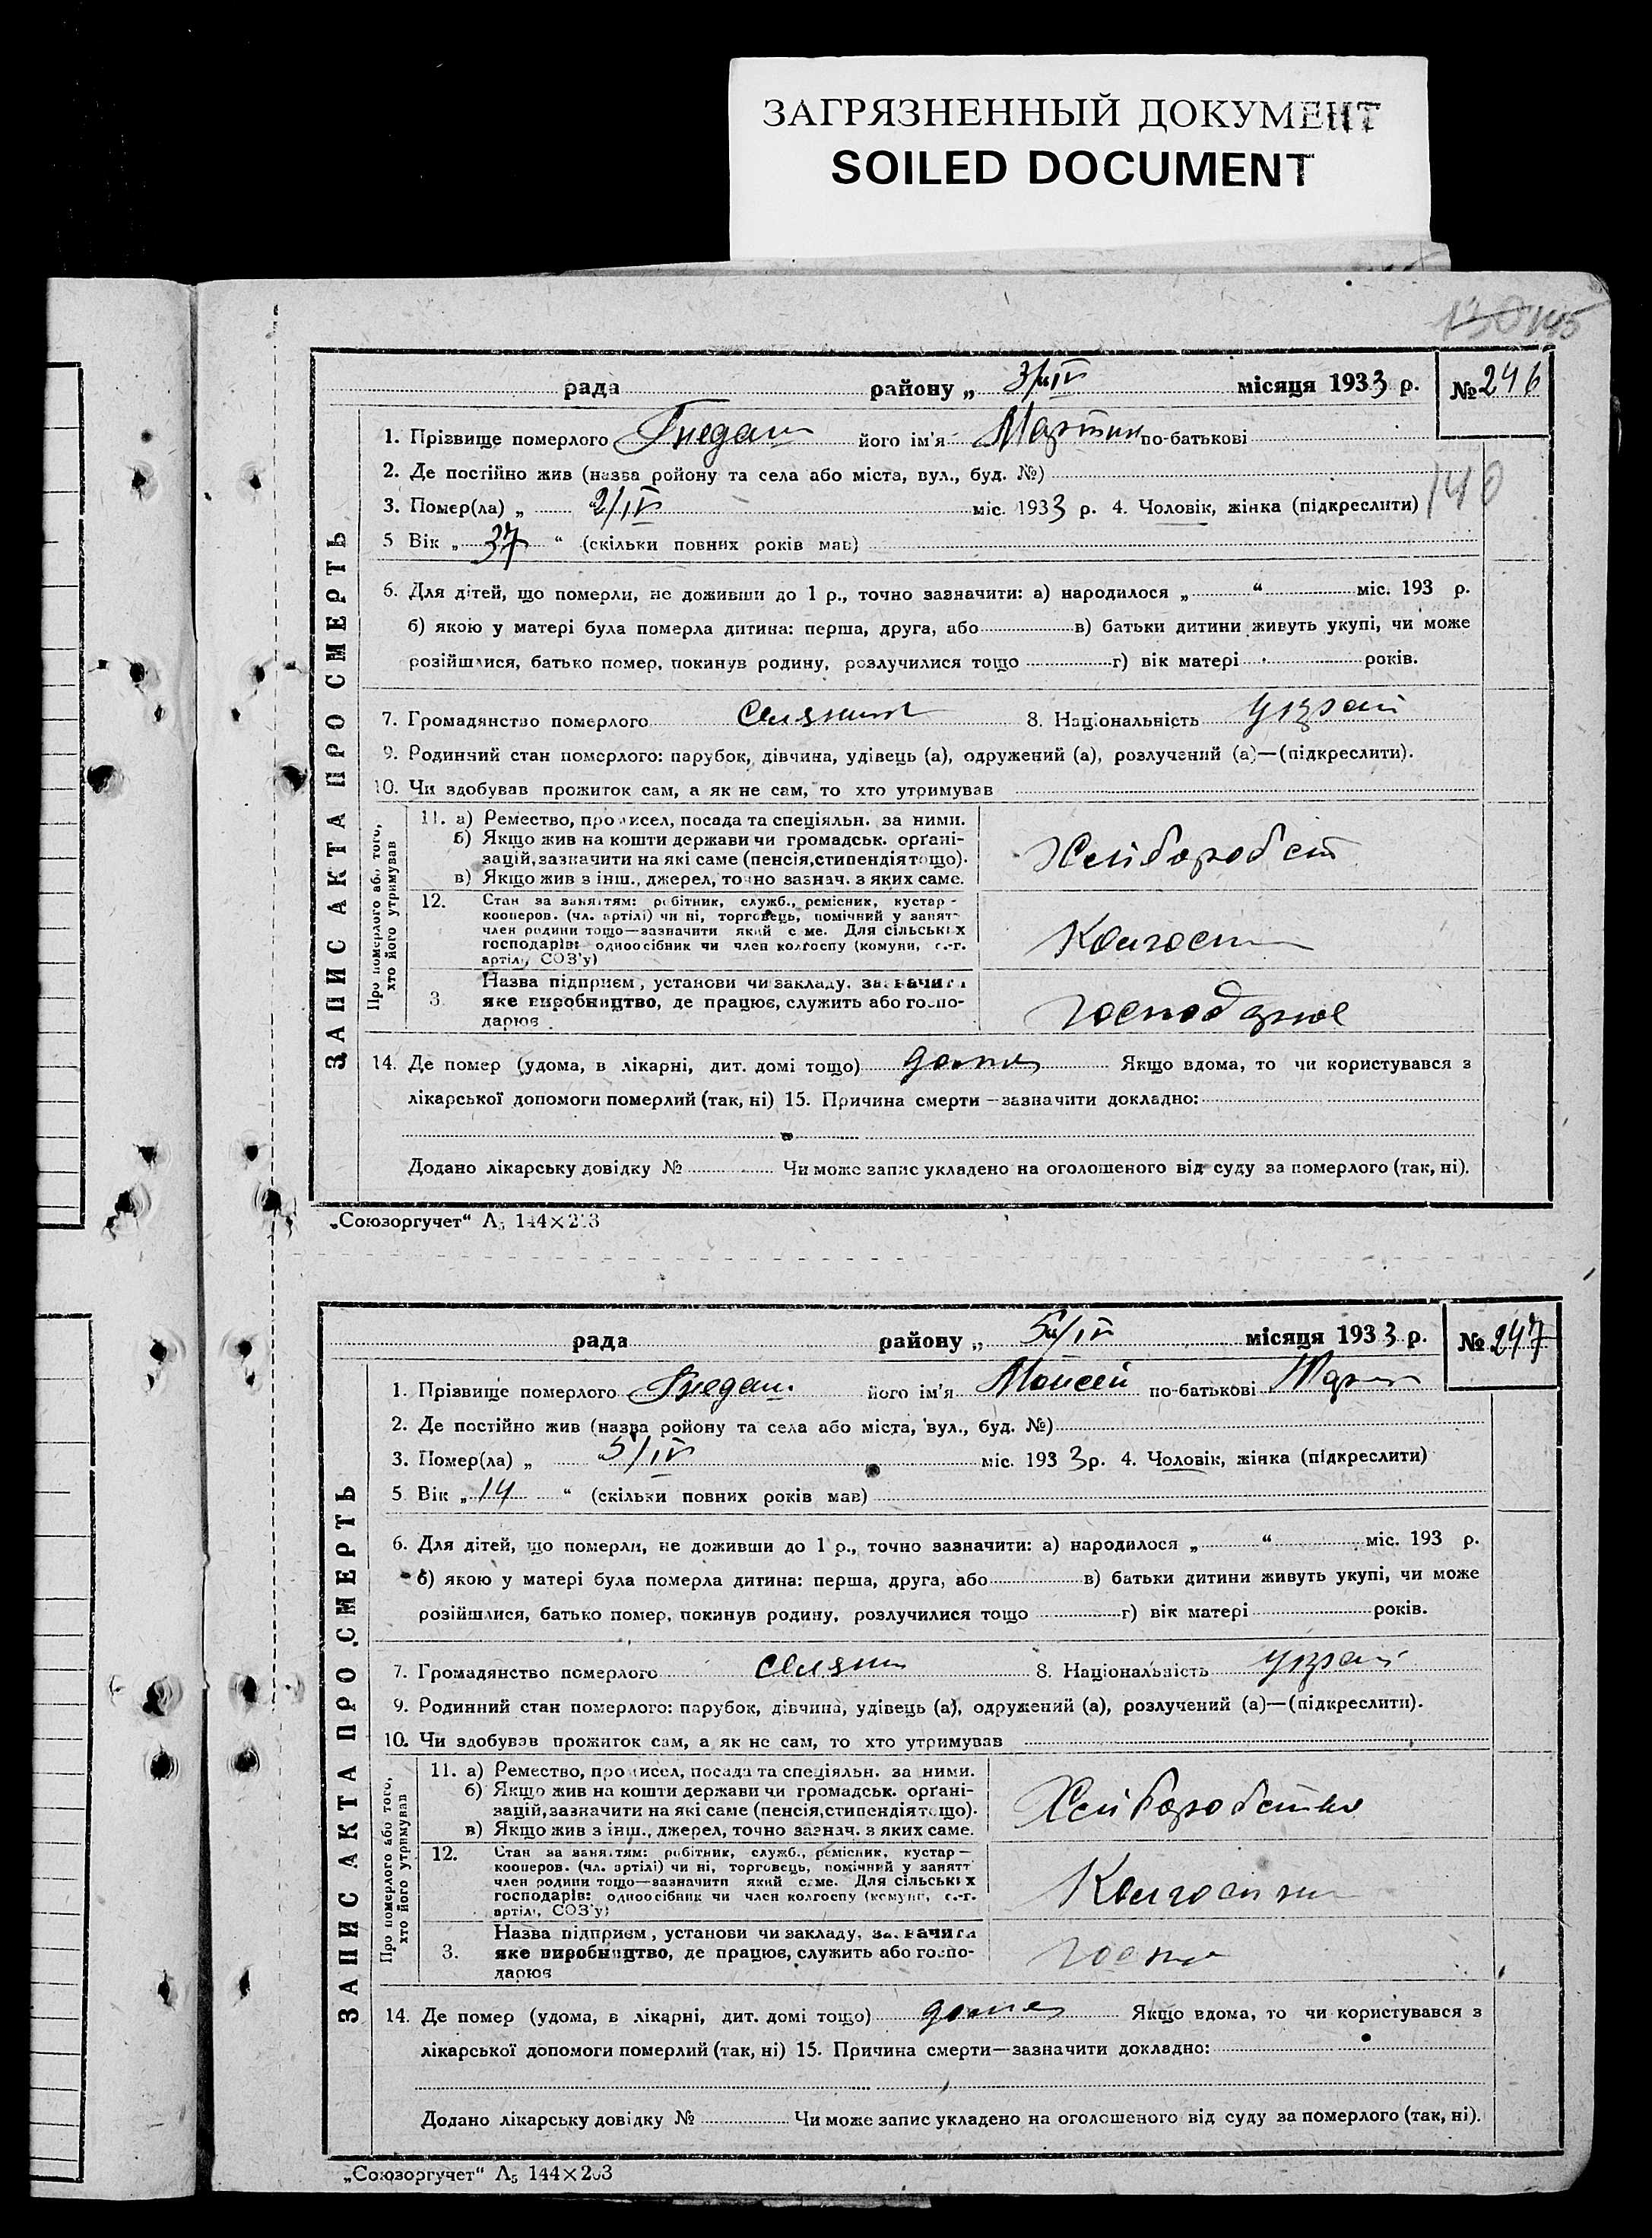 ЗАГРЯЗНЕННЫЙ ДОКУМЕНТ
SOILED DOCUMENT
145
рада району „ 3/IV місяця 1933 р. № 246
1. Прізвище померлого Гнедаш його ім'я Мартин по-батькові
140
2. Де постійно жив (назва ройону та села або міста, вул., буд. №)
3. Помер(ла) „ 2/IV міс. 1933 р. 4. Чоловік, жінка (підкреслити)
5 Вік „ 37 “ (скільки повних років мав)
6. Для дітей, що померли, не доживши до 1 р., точно зазначити: а) народилося „ “ міс. 193 р.
б) якою у матері була померла дитина: перша, друга, або в) батьки дитини живуть укупі, чи може
розійшлися, батько помер, покинув родину, розлучилися тощо г) вік матері років.
7. Громадянство померлого селянин 8. Національність украї
9. Родинний стан померлого: парубок, дівчина, удівець (а), одружений (а), розлучений (а)—(підкреслити).
10. Чи здобував прожиток сам, а як не сам, то хто утримував
ЗАПИС АКТА ПРО СМЕРТЬ
Про померлого або того, хто його утримував
11. а) Ремество, промисел, посада та спеціяльн. за ними.
б) Якщо жив на кошти держави чи громадськ. орґані-
зацій, зазначити на які саме (пенсія, стипендія тощо).
в) Якщо жив з інш., джерел, точно зазнач. з яких саме.
Хлібороб ст
12. Стан за заняттям: робітник, служб., ремісник, кустар-
кооперов. (чл. артілі) чи ні, торговець, помічний у занят-
член родини тощо—зазначити який саме. Для сільських
господарів: одноосібник чи член колгоспу (комуни, с.-г.
артілі, СОЗ'у)
Колгосп
3. Назва підприєм, установи чи закладу, зазначити
яке виробництво, де працює, служить або госпо-
дарює
господарює
14. Де помер (удома, в лікарні, дит. домі тощо) дома Якщо вдома, то чи користувався з
лікарської допомоги померлий (так, ні) 15. Причина смерти—зазначити докладно:
Додано лікарську довідку № Чи може запис укладено на оголошеного від суду за померлого (так, ні).
„Союзоргучет“ А5 144×203
рада району „ 5/IV місяця 1933 р. № 247
1. Прізвище померлого Гнедаш його ім'я Моисей по-батькові Март
2. Де постійно жив (назва ройону та села або міста, вул., буд. №)
3. Помер(ла) „ 5/IV міс. 1933 р. 4. Чоловік, жінка (підкреслити)
5 Вік „ 14 “ (скільки повних років мав)
6. Для дітей, що померли, не доживши до 1 р., точно зазначити: а) народилося „ “ міс. 193 р.
б) якою у матері була померла дитина: перша, друга, або в) батьки дитини живуть укупі, чи може
розійшлися, батько помер, покинув родину, розлучилися тощо г) вік матері років.
7. Громадянство померлого селянин 8. Національність украї
9. Родинний стан померлого: парубок, дівчина, удівець (а), одружений (а), розлучений (а)—(підкреслити).
10. Чи здобував прожиток сам, а як не сам, то хто утримував
ЗАПИС АКТА ПРО СМЕРТЬ
Про померлого або того, хто його утримував
11. а) Ремество, промисел, посада та спеціяльн. за ними.
б) Якщо жив на кошти держави чи громадськ. орґані-
зацій, зазначити на які саме (пенсія, стипендія тощо).
в) Якщо жив з інш., джерел, точно зазнач. з яких саме.
Хліборобство
12. Стан за заняттям: робітник, служб., ремісник, кустар—
кооперов. (чл. артілі) чи ні, торговець, помічний у занятт
член родини тощо—зазначити який саме. Для сільських
господарів: одноосібник чи член колгоспу (комуни, с.-г.
артілі, СОЗ'у)
Колгоспник
3. Назва підприєм, установи чи закладу, зазначити
яке виробництво, де працює, служить або госпо-
дарює
госпо
14. Де помер (удома, в лікарні, дит. домі тощо) дома Якщо вдома, то чи користувався з
лікарської допомоги померлий (так, ні) 15. Причина смерти—зазначити докладно:
Додано лікарську довідку № Чи може запис укладено на оголошеного від суду за померлого (так, ні).
„Союзоргучет“ А5 144×203